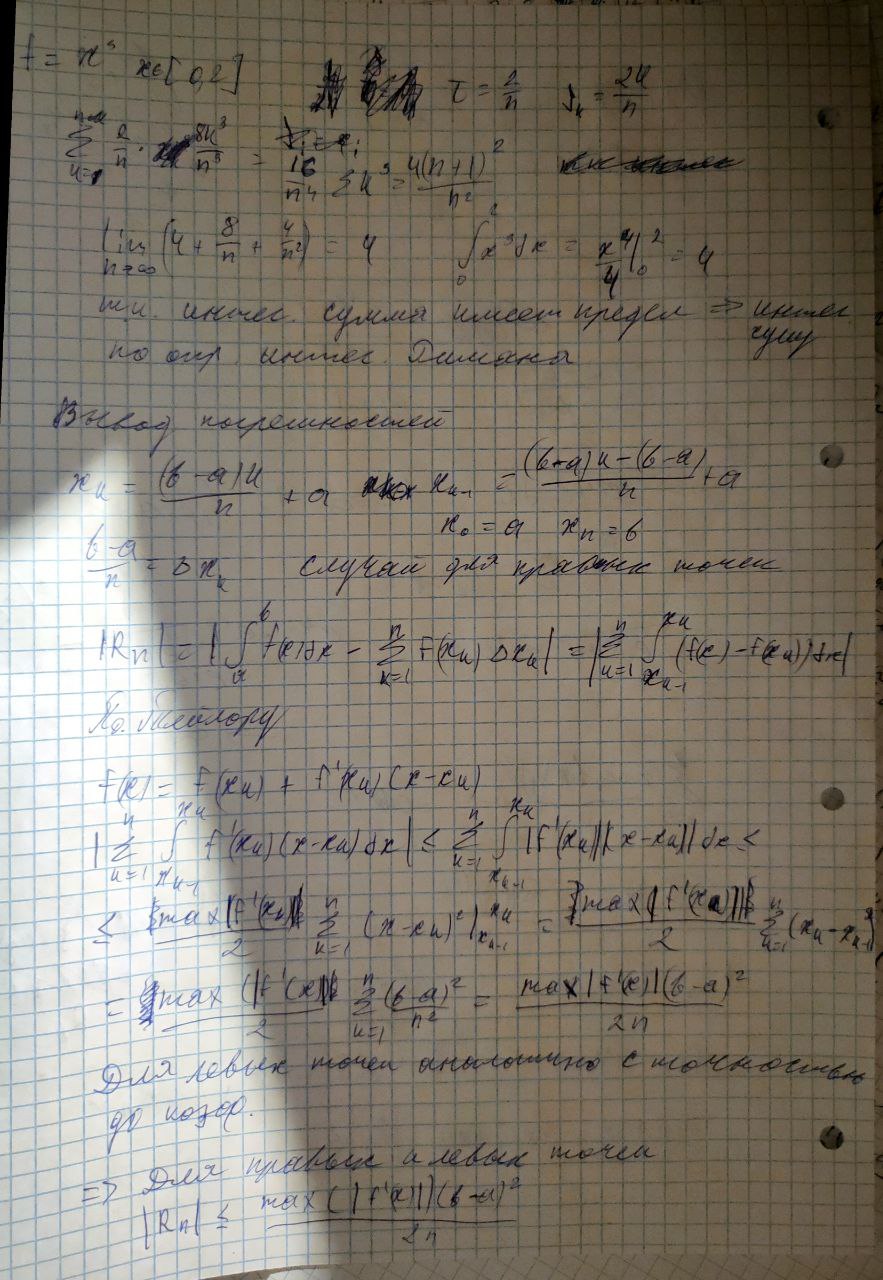 f = x³ x∈[0,2] τ = 2/n ξₖ = 2k/n
∑ₖ₌₁ 2/n · 8k³/n³ = 16/n⁴ ∑k³ = 4(n+1)²/n²
lim n→∞ (4 + 8/n + 4/n²) = 4 ∫₀² x³dx = x⁴/4 |₀² = 4
т.к. интег. сумма имеет предел => интег
сущ
по опр. интег. Римана
Вывод погрешностей
xₖ = (b-a)k/n + a xₖ₋₁ = ((b-a)k-(b-a))/n + a
x₀ = a xₙ = b
(b-a)/n = Δxₖ случай для правых точек
|Rₙ| = |∫ₐᵇ f(x)dx - ∑ₖ₌₁ⁿ f(xₖ)Δxₖ| = |∑ₖ₌₁ⁿ ∫ₓₖ₋₁ˣᵏ (f(x)-f(xₖ))dx|
По Тейлору
f(x) = f(xₖ) + f'(xₖ)(x-xₖ)
|∑ₖ₌₁ⁿ ∫ₓₖ₋₁ˣᵏ f'(xₖ)(x-xₖ)dx| ≤ ∑ₖ₌₁ⁿ ∫ₓₖ₋₁ˣᵏ |f'(xₖ)||x-xₖ|dx ≤
≤ max|f'(xₖ)|/2 ∑ₖ₌₁ⁿ (x-xₖ)²|ₓₖ₋₁ˣᵏ = max|f'(xₖ)|/2 ∑ₖ₌₁ⁿ (xₖ-xₖ₋₁)²
= max(|f'(x)|)/2 ∑ₖ₌₁ⁿ (b-a)²/n² = max|f'(x)|(b-a)²/2n
Для левых точек аналогично с точностью
до коэфф.
=> Для правых и левых точек
|Rₙ| ≤ max(|f'(x)|)(b-a)²/2n